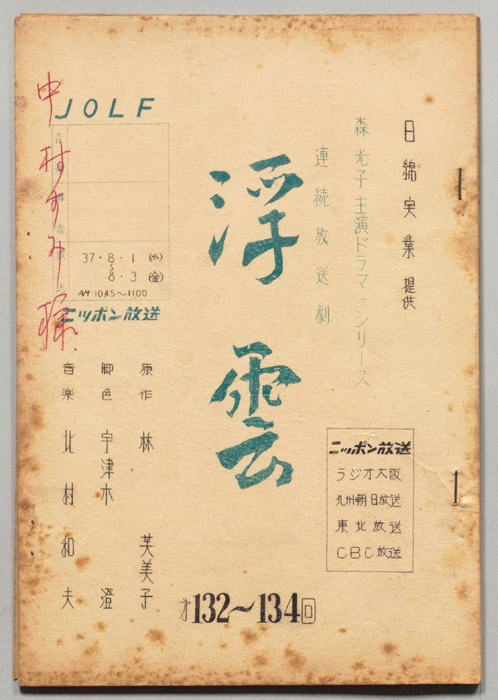 日綿実業 提供
森光子主演ドラマ・シリーズ
連続放送劇
浮雲
JOLF
37・8・1(水)
〜
8・3(金)
AM 1045〜1100
ニッポン放送
中村すみ様
原作 林 芙美子
脚色 宇津木 澄
音楽 北村和夫
ニッポン放送
ラジオ大阪
九州朝日放送
東北放送
CBC放送
才132〜134回